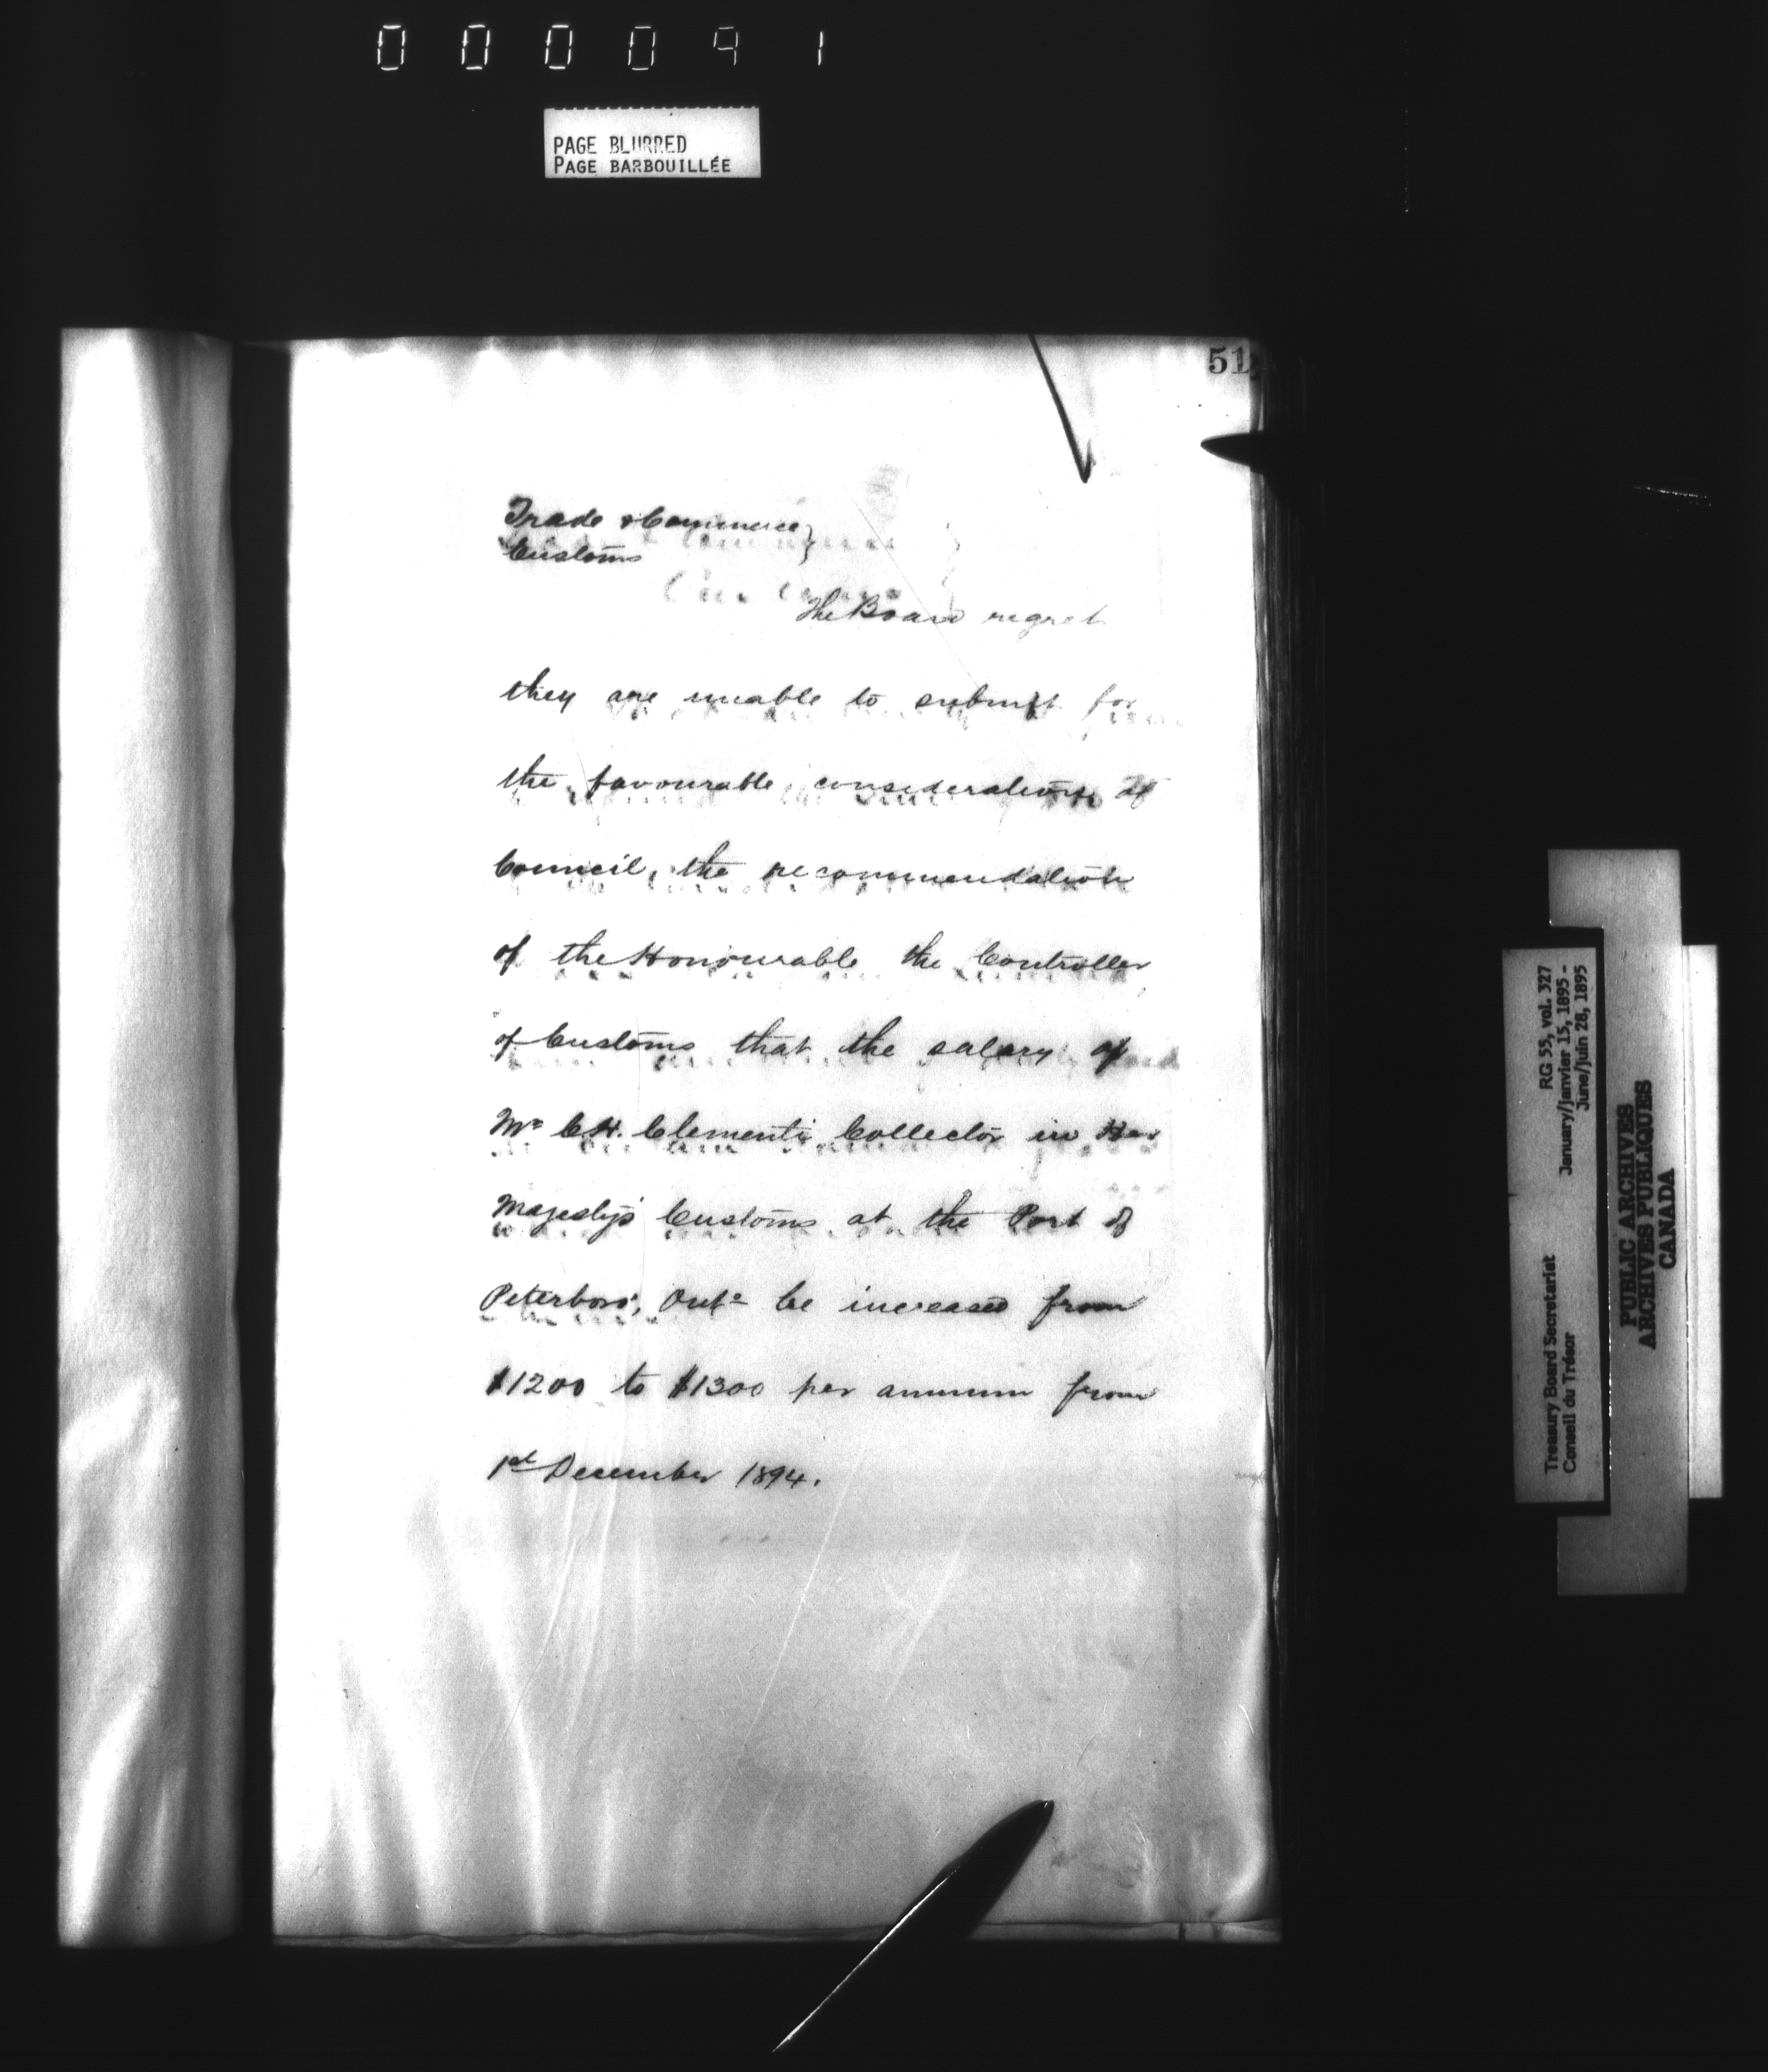 000091
PAGE BLURRED
PAGE BARBOUILLÉE
51
Trade & Commerce }
Customs
The Board regret
they are unable to submit for
the favourable consideration of
Council, the recommendation
of the Honourable the Controller
of Customs that the salary of
Mr C.H. Clementi Collector in Her
Majesty's Customs at the Port of
Peterboro', Onto be increased from
$1200 to $1300 per annum from
1st December 1894.
Treasury Board Secretariat RG 55, vol. 327
Conseil du Trésor January/janvier 15, 1895 -
June/juin 28, 1895
PUBLIC ARCHIVES
ARCHIVES PUBLIQUES
CANADA